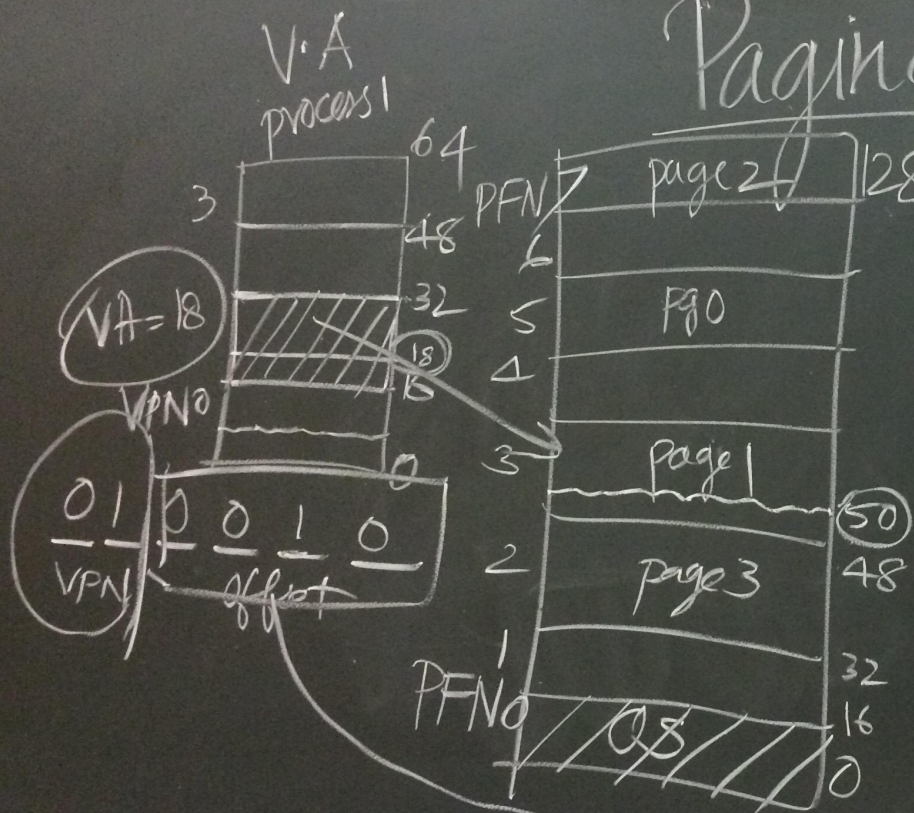 V.A
process1
Paging
64
3
48
VA=18
32
18
16
VPN0
0
0 1 0 0 1 0
VPN
offset
PFN7
page2
128
6
5
pg0
4
3
page1
50
2
page3
48
1
32
PFN0
OS
16
0